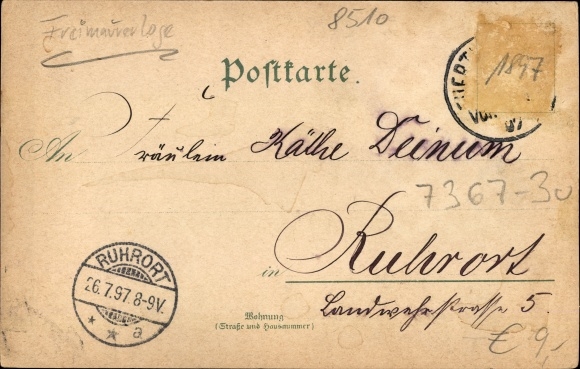 Freimaurerloge
8510
Postkarte.
1897
An Fräulein Käthe Deinum
7367-30
in Ruhrort
Landwehrstrasse 5.
Wohnung
(Straße und Hausnummer)
€ 9,-
RUHRORT
26.7.97.8-9V.
* * a